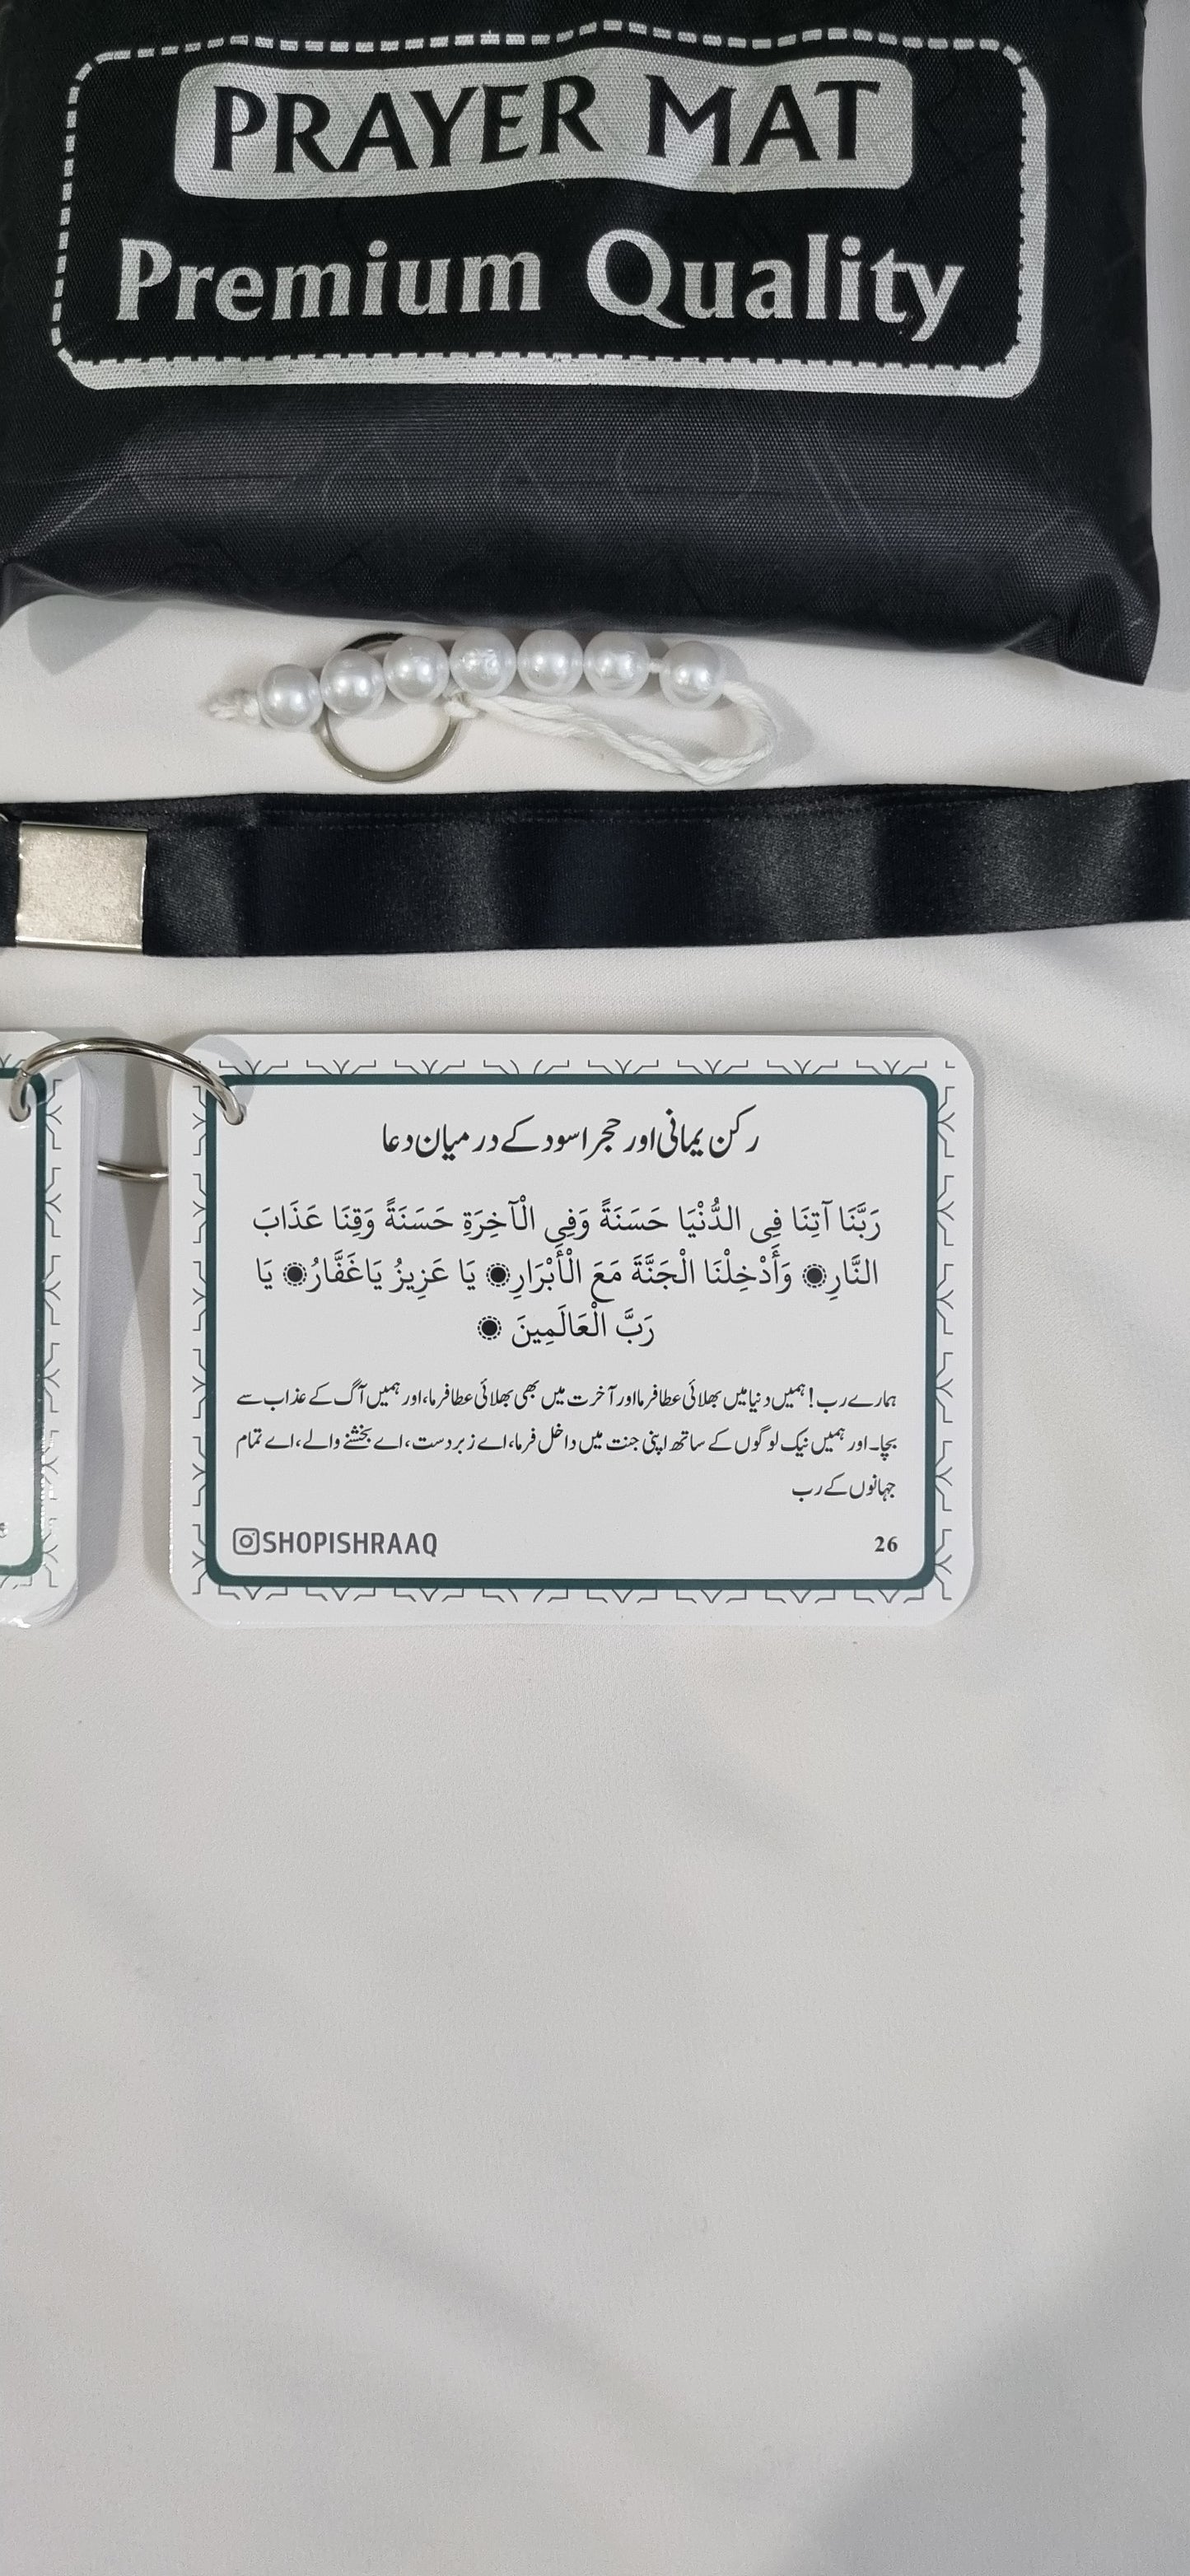 PRAYER MAT
Premium Quality
رکن یمانی اور حجر اسود کے درمیان دعا
رَبَّنَا آتِنَا فِي الدُّنْيَا حَسَنَةً وَفِي الْآخِرَةِ حَسَنَةً وَقِنَا عَذَابَ
النَّارِ۞ وَأَدْخِلْنَا الْجَنَّةَ مَعَ الْأَبْرَارِ۞ يَا عَزِيزُ يَاغَفَّارُ۞ يَا
رَبَّ الْعَالَمِينَ ۞
ہمارے رب! ہمیں دنیا میں بھلائی عطا فرما اور آخرت میں بھی بھلائی عطا فرما، اور ہمیں آگ کے عذاب سے
بچا۔ اور ہمیں نیک لوگوں کے ساتھ اپنی جنت میں داخل فرما، اے زبردست، اے بخشنے والے، اے تمام
جہانوں کے رب
SHOPISHRAAQ
26